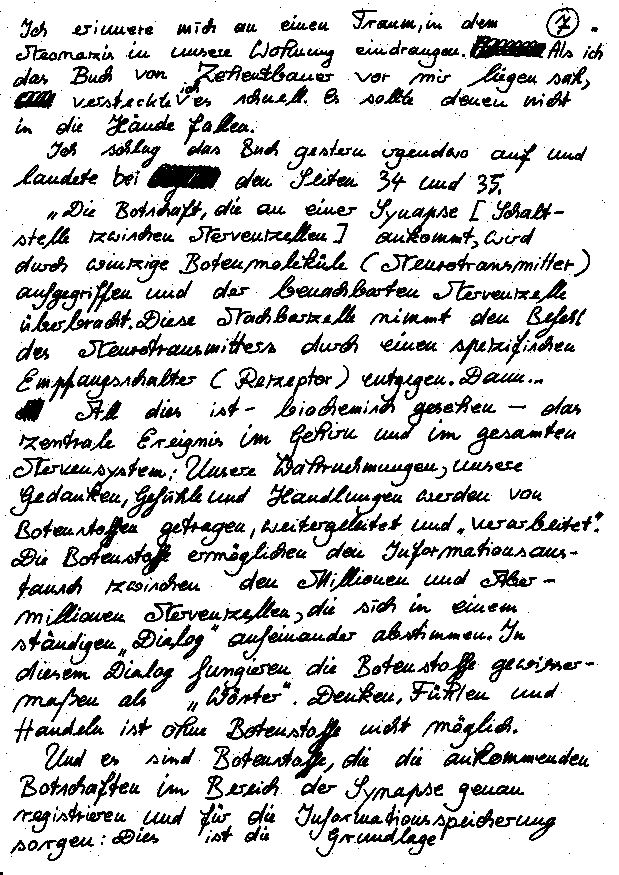 Ich erinnere mich an einen Traum, in dem 7.
Neonazis in unsere Wohnung eindrangen. Als ich
das Buch von Zehentbauer vor mir liegen sah,
versteckte ich es schnell. Es sollte denen nicht
in die Hände fallen.
Ich schlug das Buch gestern irgendwo auf und
landete bei den Seiten 34 und 35.
„Die Botschaft, die an einer Synapse [Schalt-
stelle zwischen Nervenzellen] ankommt, wird
durch winzige Botenmoleküle (Neurotransmitter)
aufgegriffen und der benachbarten Nervenzelle
überbracht. Diese Nachbarzelle nimmt den Befehl
des Neurotransmitters durch einen spezifischen
Empfangsschalter (Rezeptor) entgegen. Dann...
All dies ist - biochemisch gesehen - das
zentrale Ereignis im Gehirn und im gesamten
Nervensystem: Unsere Wahrnehmungen, unsere
Gedanken, Gefühle und Handlungen werden von
Botenstoffen getragen, weitergeleitet und „verarbeitet".
Die Botenstoffe ermöglichen den Informationsaus-
tausch zwischen den Millionen und Aber-
millionen Nervenzellen, die sich in einem
ständigen „Dialog" aufeinander abstimmen. In
diesem Dialog fungieren die Botenstoffe gewisser-
maßen als „Wörter". Denken, Fühlen und
Handeln ist ohne Botenstoffe nicht möglich.
Und es sind Botenstoffe, die die ankommenden
Botschaften im Bereich der Synapse genau
registrieren und für die Informationsspeicherung
sorgen: Dies ist die Grundlage